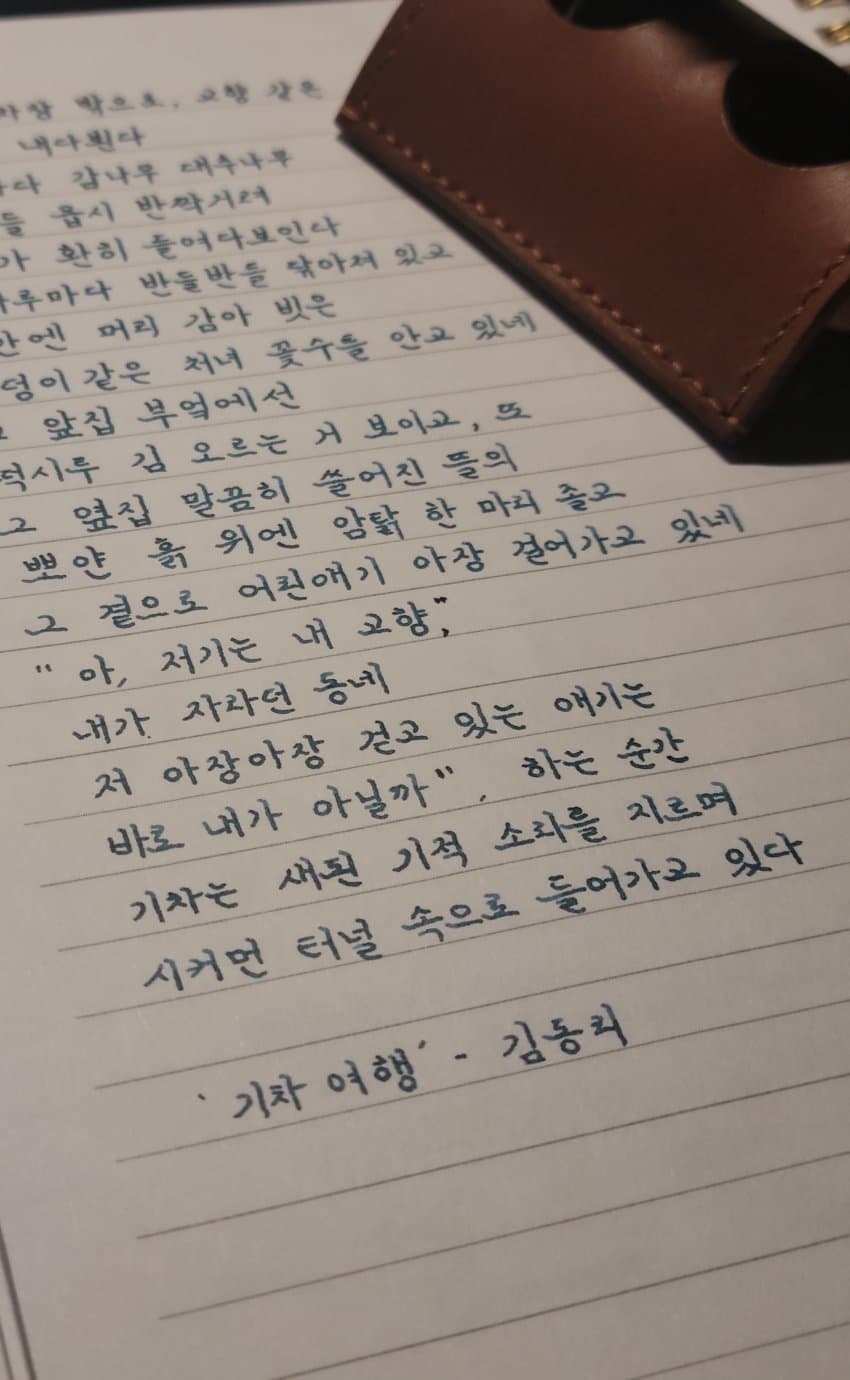 밖으로, 고향 같은
내다뵌다
감나무 대추나무
들 몹시 반짝거려
환히 들여다보인다
반들반들 닦아져 있고
머리 감아 빗은
덩이 같은 처녀 꽃수를 안고 있네
앞집 부엌에선
떡시루 김 오르는 거 보이고, 또
그 옆집 말끔히 쓸어진 뜰의
뽀얀 흙 위엔 암탉 한 마리 졸고
그 곁으로 어린애기 아장 걸어가고 있네
"아, 저기는 내 고향",
내가 자라던 동네
저 아장아장 걷고 있는 애기는
바로 내가 아닐까", 하는 순간
기차는 새된 기적 소리를 지르며
시커먼 터널 속으로 들어가고 있다
'기차 여행' - 김동리